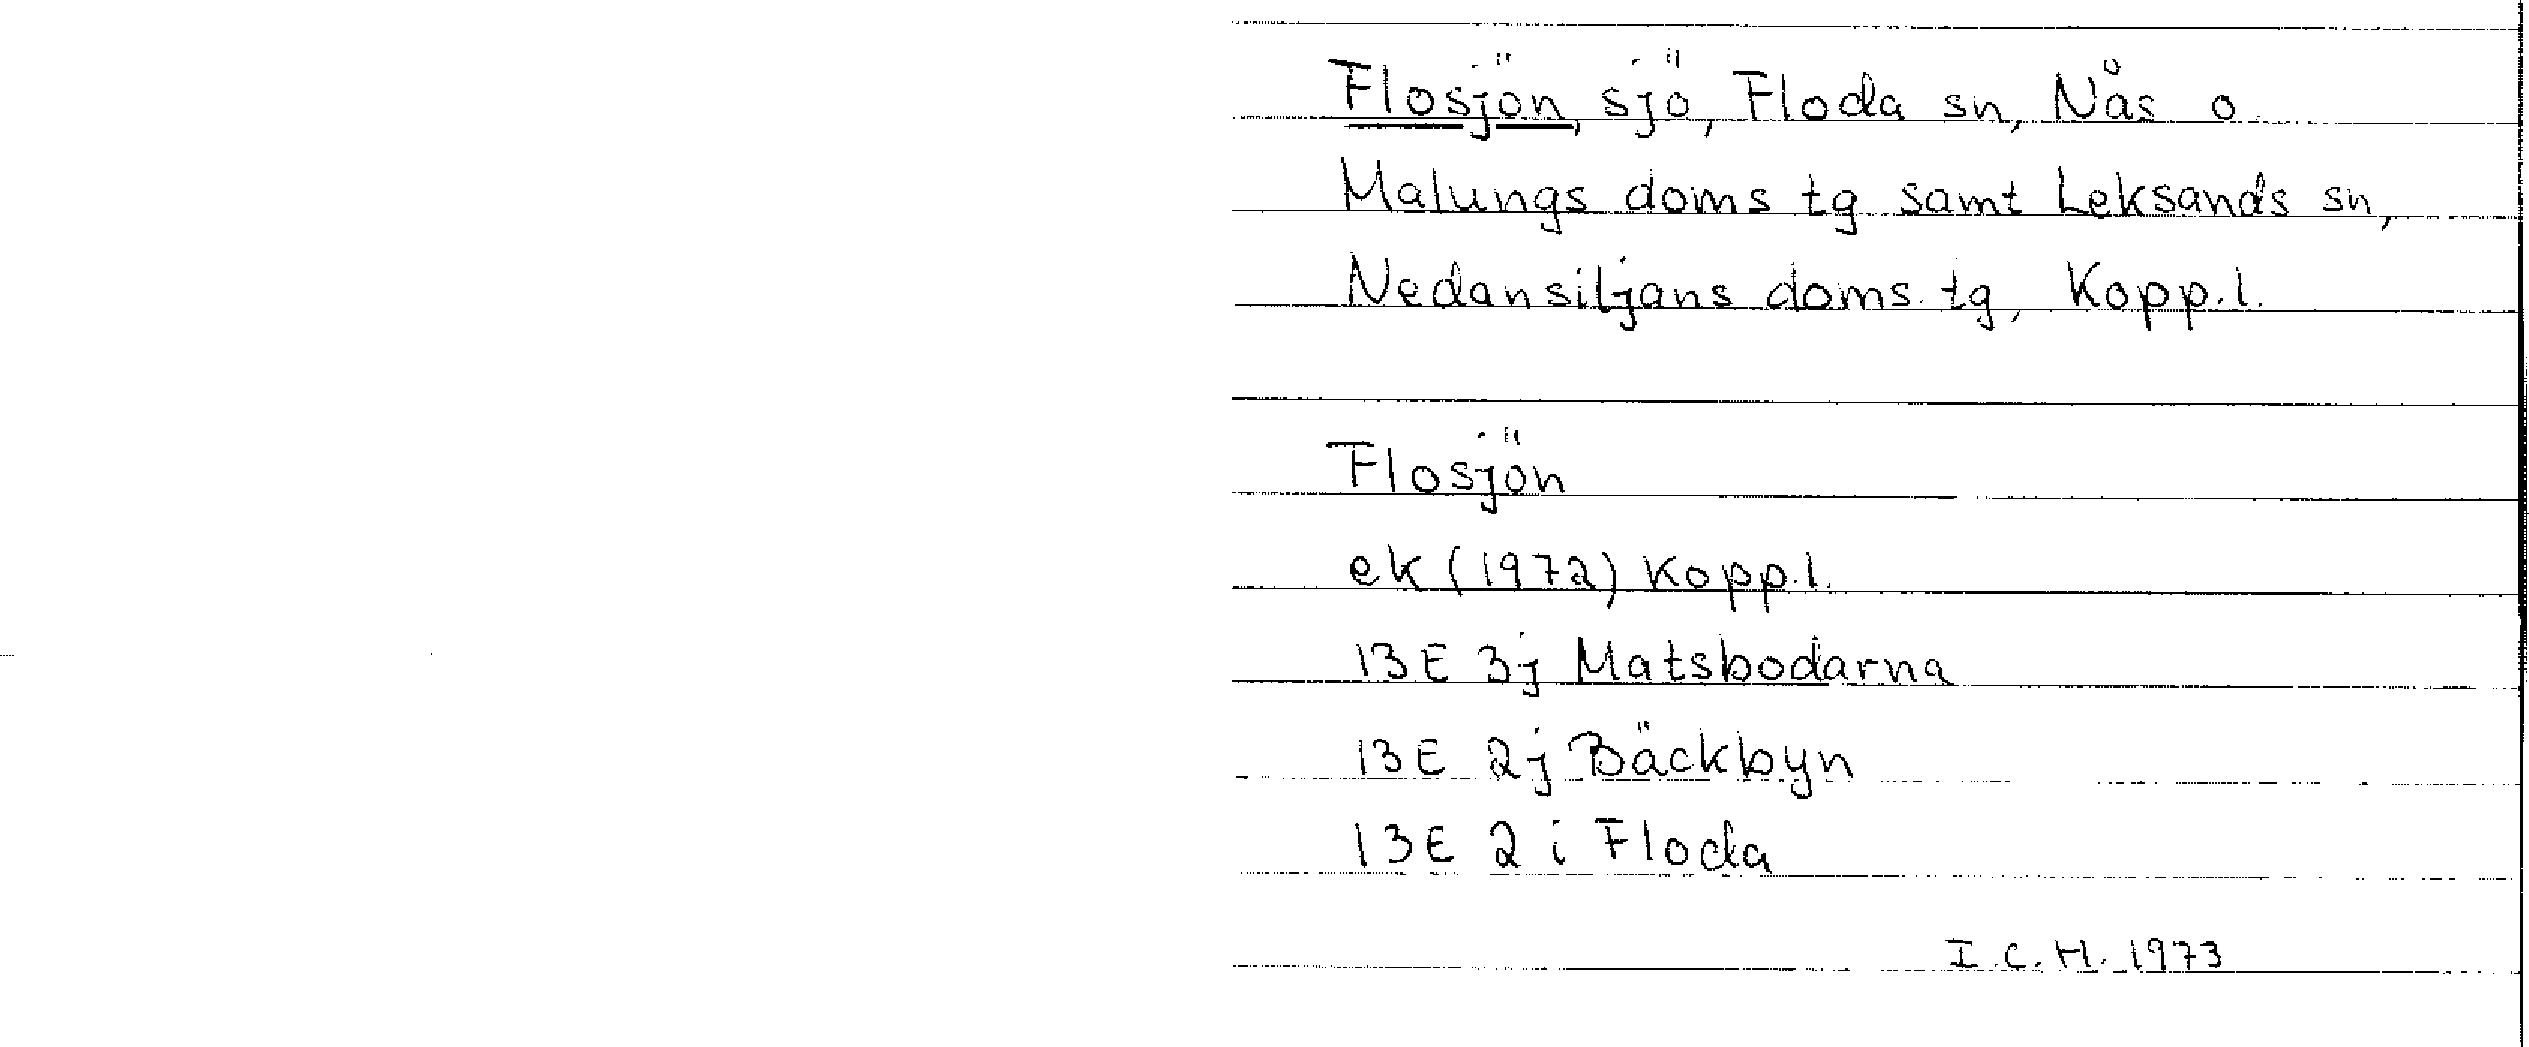 Flosjön, sjö, Floda sn, Nås o.
Malungs doms tg samt Leksands sn,
Nedansiljans doms. tg, Kopp.l.
Flosjön
ek (1972) Kopp.l.
13E 3j Matsbodarna
13E 2j Bäckbyn
13E 2i Floda
I.C.H. 1973